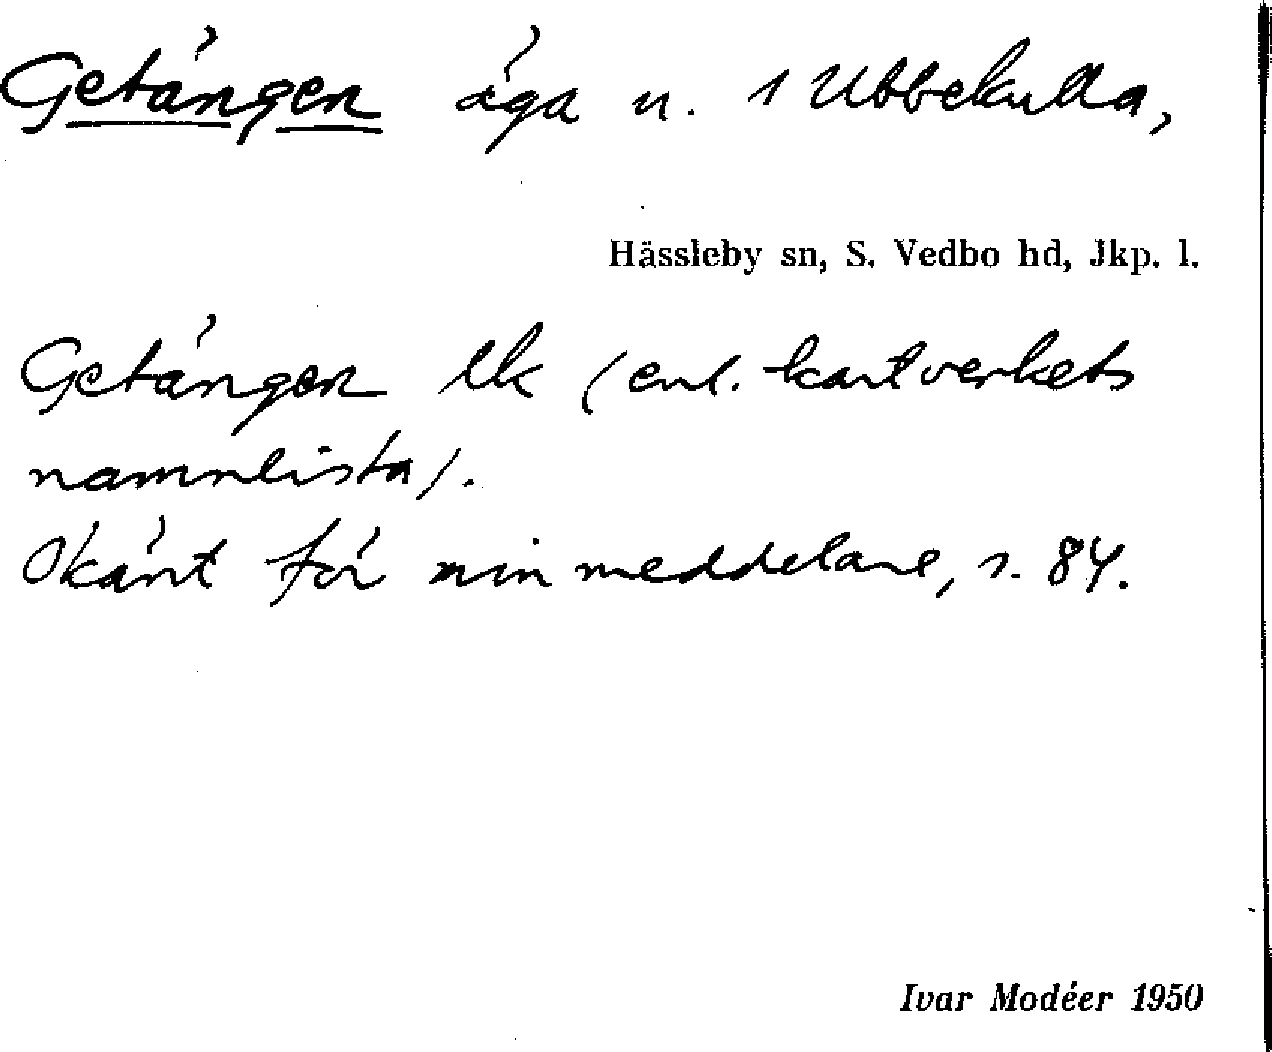 Getängen äga u. 1 Ubbekulla,
Hässleby sn, S. Vedbo hd, Jkp. l.
Getängen Ek (enl. kartverkets
namnlista).
Okänt för min meddelare, s. 84.
Ivar Modéer 1950